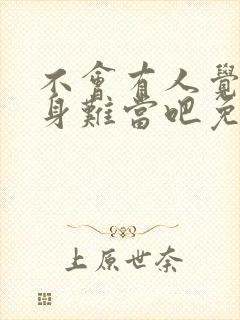 不會有人覺
身難當吧免
上原世奈